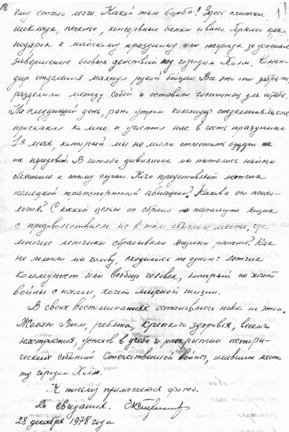 ему стало легче. Какой там бомба! Здесь плитки
шоколада, печенье, консервные банки и вино. Прямо как
подарок к майскому празднику или награда за успешное
завершение боевых действий под городом Холм. Коман-
дир отделения махнул рукой бойцам. Все это они забрали,
разделили между собой и оставили гостинец для штаба.
На следующий день, рано утром командир отделения
прискакал ко мне и угостил нас в честь праздника
1го мая, который мы не могли отметить будучи
на передовой. В штабе дивизиона мы пытались найти
объяснение к этому случаю. Кого представлял летчик
немецкой транспортной авиации? Какова его психо-
логия? С какой целью он сбросил на парашюте ящик
с продовольствием не в том обычном месте, где
многие летчики сбрасывали ящики раньше? Как
не ломали мы голову, сходились на одном: летчик
коммунист или вообще человек, который не хочет
войны с нами, хочет мирной жизни.
В своих воспоминаниях остановлюсь пока на этом.
Желаю Вам, ребята, крепкого здоровья, веселого
настроения, успехов в учебе и раскрытии истори-
ческих событий Отечественной войны, имевших место
под городом Холм.
К письму прилагается фото.
До свидания.
28 декабря 1978 года